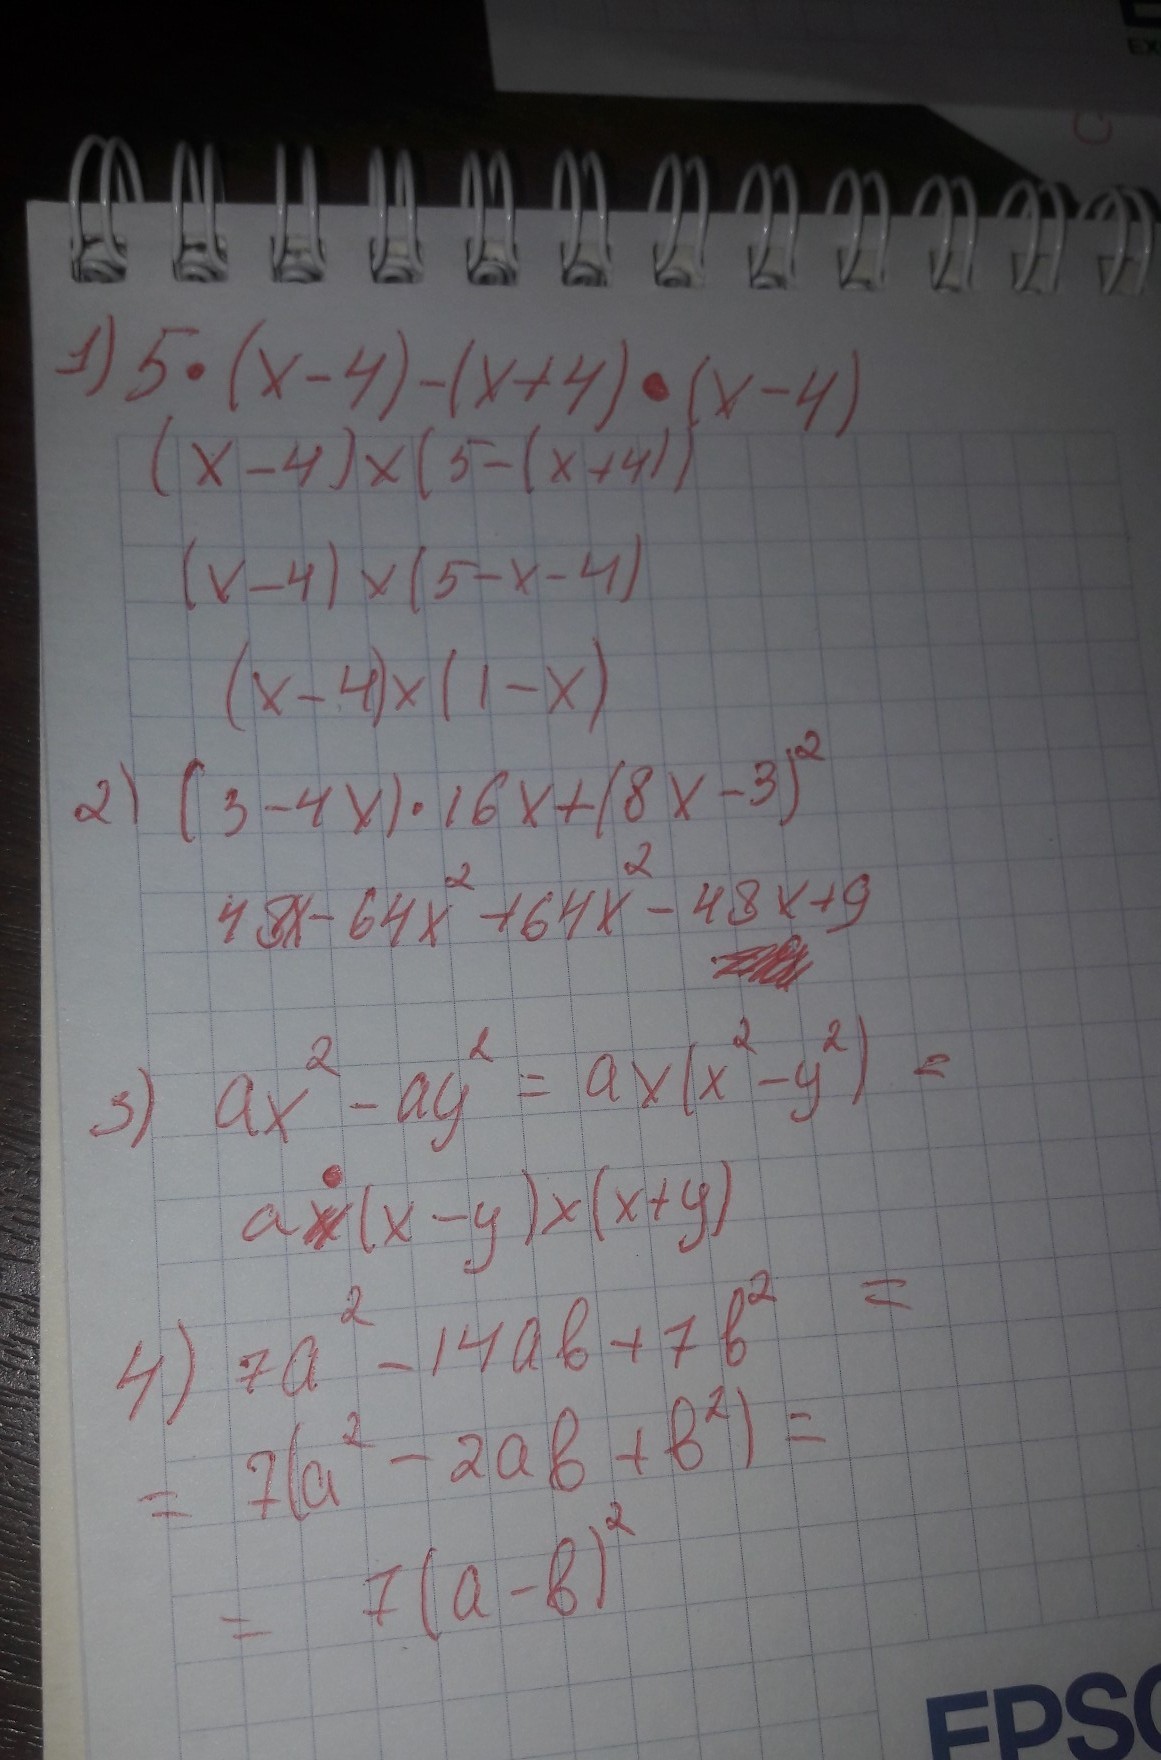 EX
1) 5•(x-4)-(x+4)•(x-4)
(x-4)x(5-(x+4))
(x-4)x(5-x-4)
(x-4)x(1-x)
2) (3-4x)•16x+(8x-3)²
48x-64x²+64x²-48x+9
3) ax²-ay²=ax(x²-y²)=
a•(x-y)x(x+y)
4) 7a²-14ab+7b² =
= 7(a²-2ab+b²)=
= 7(a-b)²
EPSO